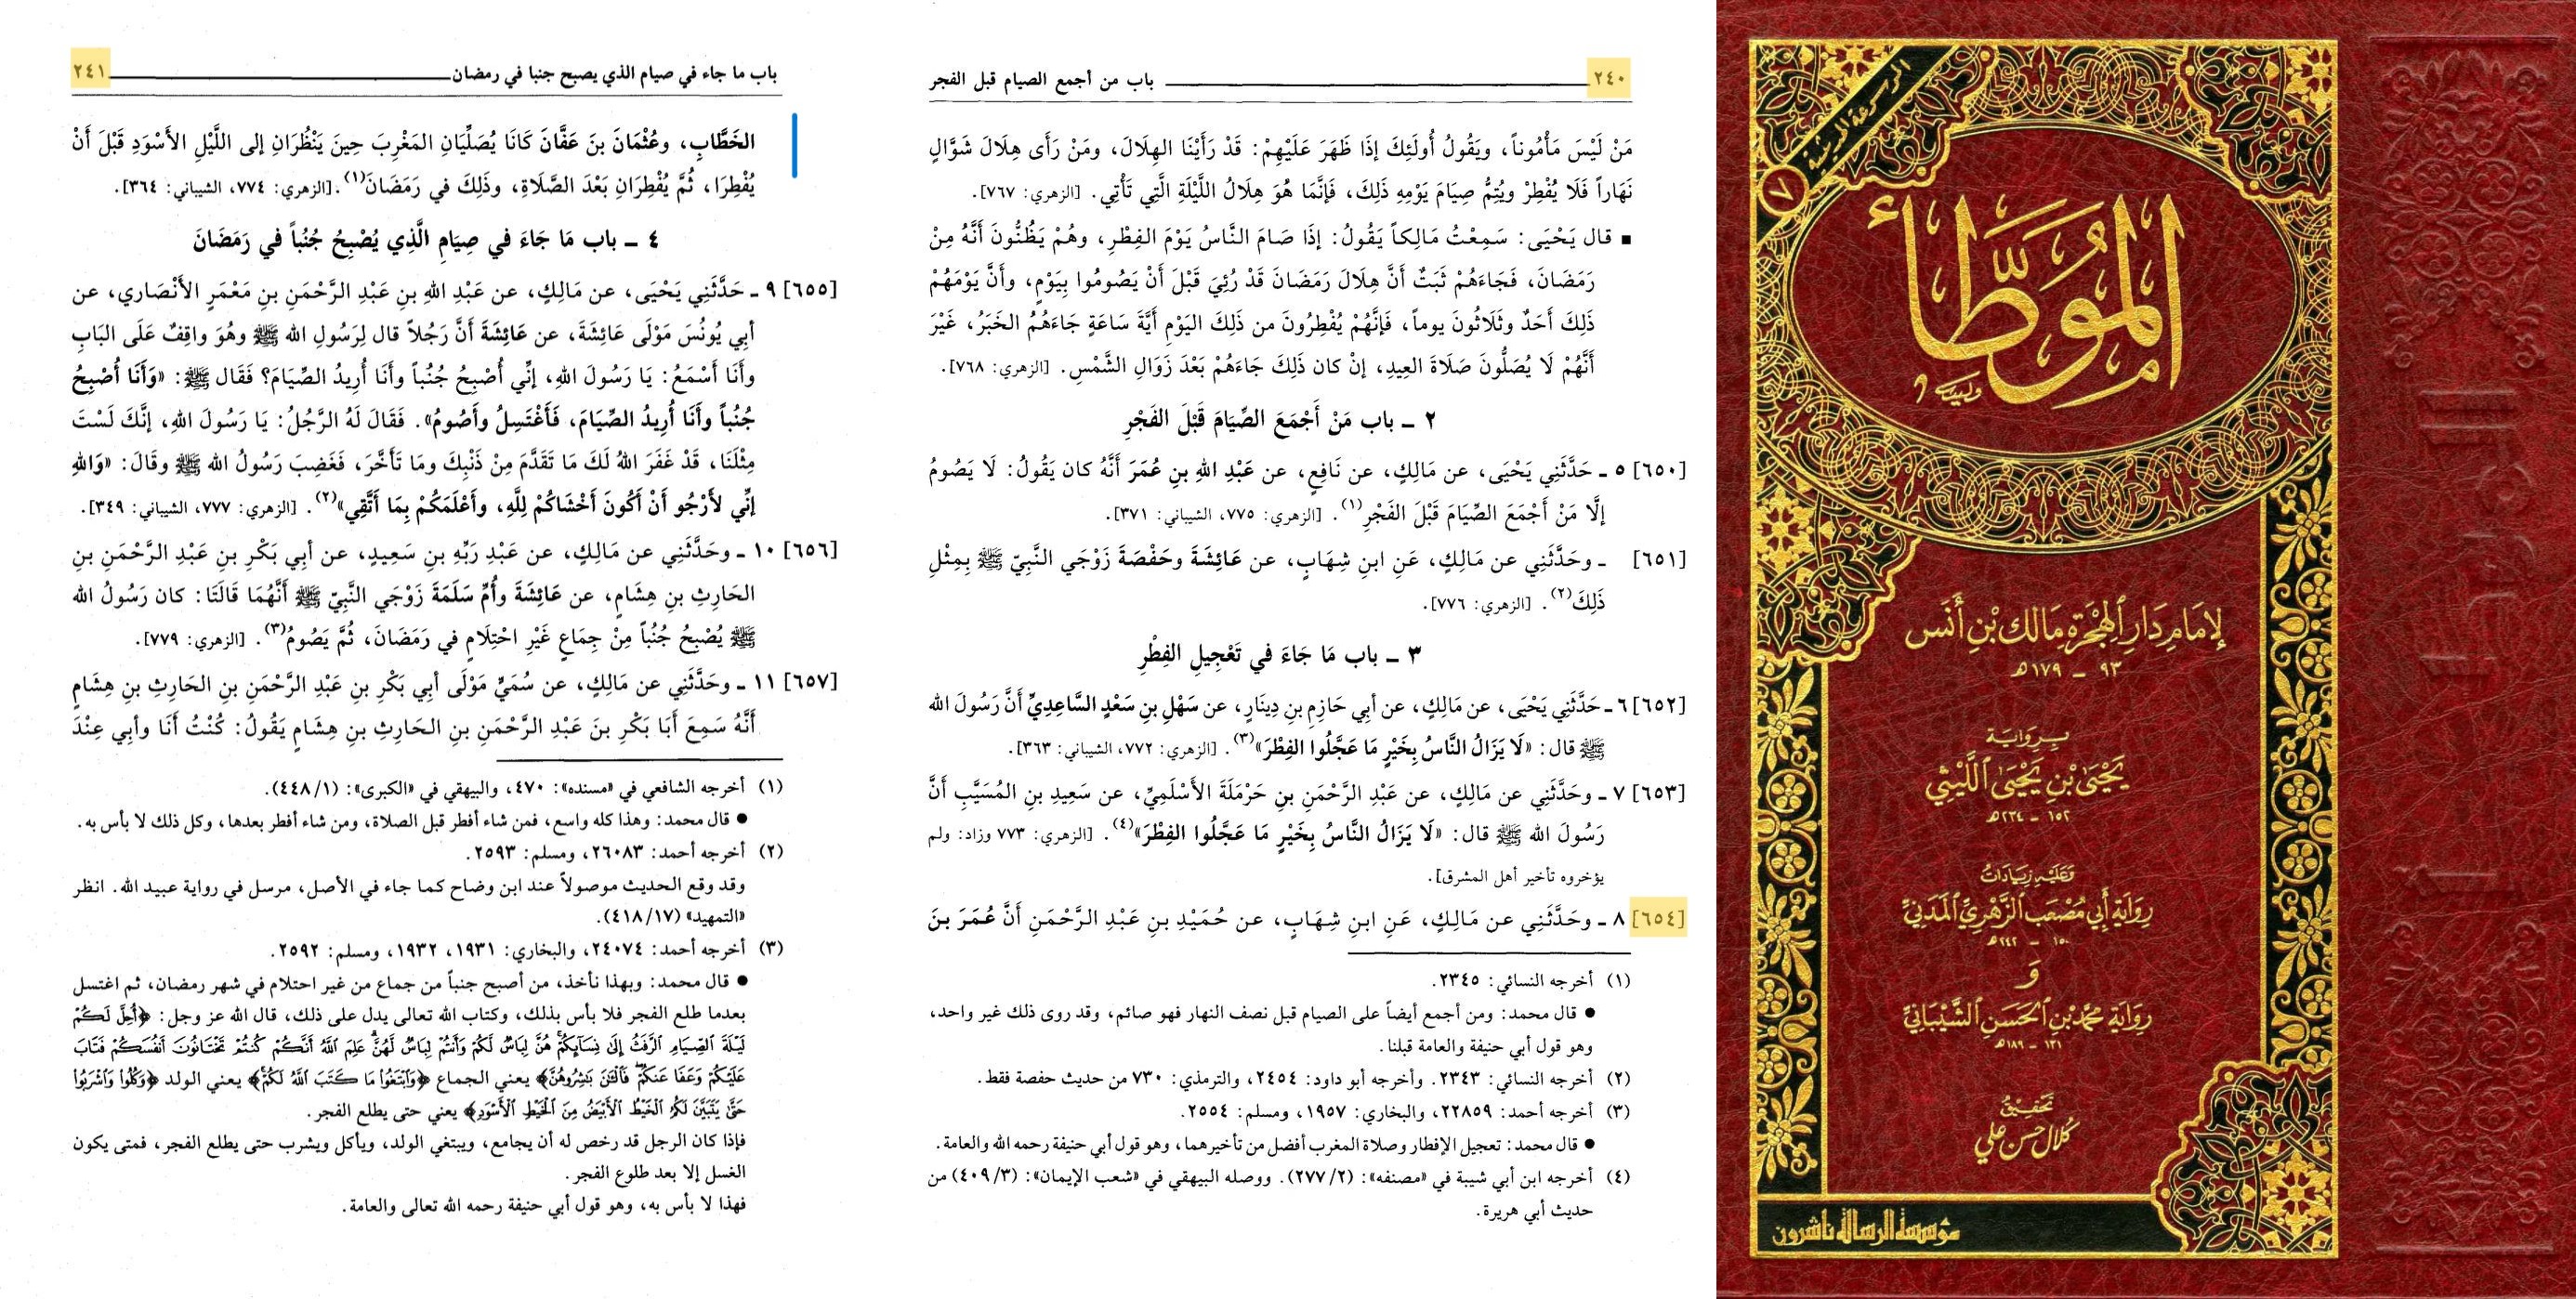 الموسوعة الحديثية
٧
الموطأ
لإمام دار الهجرة مالك بن أنس
٩٣ - ١٧٩هـ
برواية
يحيى بن يحيى الليثي
١٥٢ - ٢٣٤هـ
وعليه زيادات
رواية أبي مصعب الزهري المدني
١٥٠ - ٢٤٢هـ
و
رواية محمد بن الحسن الشيباني
١٣١ - ١٨٩هـ
تحقيق
كلال حسن علي
مؤسسة الرسالة ناشرون
٢٤٠ باب من أجمع الصيام قبل الفجر
مَنْ لَيْسَ مَأْمُوناً، ويَقُولُ أُولَئِكَ إذَا ظَهَرَ عَلَيْهِمْ: قَدْ رَأَيْنَا الهِلَالَ، ومَنْ رَأَى هِلَالَ شَوَّالٍ
نَهَاراً فَلَا يُفْطِرْ ويُتِمُّ صِيَامَ يَوْمِهِ ذَلِكَ، فَإنَّمَا هُوَ هِلَالُ اللَّيْلَةِ الَّتِي تَأْتِي. [الزهري: ٧٦٧].
■ قال يَحْيَى: سَمِعْتُ مَالِكاً يَقُولُ: إذَا صَامَ النَّاسُ يَوْمَ الفِطْرِ، وهُمْ يَظُنُّونَ أَنَّهُ مِنْ
رَمَضَانَ، فَجَاءَهُمْ ثَبَتٌ أَنَّ هِلَالَ رَمَضَانَ قَدْ رُئِيَ قَبْلَ أَنْ يَصُومُوا بِيَوْمٍ، وأَنَّ يَوْمَهُمْ
ذَلِكَ أَحَدٌ وثَلَاثُونَ يوماً، فَإنَّهُمْ يُفْطِرُونَ من ذَلِكَ اليَوْمِ أَيَّةَ سَاعَةٍ جَاءَهُمُ الخَبَرُ، غَيْرَ
أَنَّهُمْ لَا يُصَلُّونَ صَلَاةَ العِيدِ، إنْ كان ذَلِكَ جَاءَهُمْ بَعْدَ زَوَالِ الشَّمْسِ. [الزهري: ٧٦٨].
٢ - باب مَنْ أَجْمَعَ الصِّيَامَ قَبْلَ الفَجْرِ
[٦٥٠] ٥ - حَدَّثَنِي يَحْيَى، عن مَالِكٍ، عن نَافِعٍ، عن عَبْدِ اللهِ بنِ عُمَرَ أَنَّهُ كان يَقُولُ: لَا يَصُومُ
إلَّا مَنْ أَجْمَعَ الصِّيَامَ قَبْلَ الفَجْرِ(١). [الزهري: ٧٧٥، الشيباني: ٣٧١].
[٦٥١] - وحَدَّثَنِي عن مَالِكٍ، عَنِ ابنِ شِهَابٍ، عن عَائِشَةَ وحَفْصَةَ زَوْجَي النَّبِيِّ ﷺ بِمِثْلِ
ذَلِكَ(٢). [الزهري: ٧٧٦].
٣ - باب مَا جَاءَ في تَعْجِيلِ الفِطْرِ
[٦٥٢] ٦ - حَدَّثَنِي يَحْيَى، عن مَالِكٍ، عن أبي حَازِمِ بنِ دِينَارٍ، عن سَهْلِ بنِ سَعْدٍ السَّاعِدِيِّ أَنَّ رَسُولَ الله
ﷺ قال: «لَا يَزَالُ النَّاسُ بِخَيْرٍ مَا عَجَّلُوا الفِطْرَ»(٣). [الزهري: ٧٧٢، الشيباني: ٣٦٣].
[٦٥٣] ٧ - وحَدَّثَنِي عن مَالِكٍ، عن عَبْدِ الرَّحْمَنِ بنِ حَرْمَلَةَ الأَسْلَمِيِّ، عن سَعِيدِ بنِ المُسَيَّبِ أَنَّ
رَسُولَ الله ﷺ قال: «لَا يَزَالُ النَّاسُ بِخَيْرٍ مَا عَجَّلُوا الفِطْرَ»(٤). [الزهري: ٧٧٣ وزاد: ولم
يؤخروه تأخير أهل المشرق].
[٦٥٤] ٨ - وحَدَّثَنِي عن مَالِكٍ، عَنِ ابنِ شِهَابٍ، عن حُمَيْدِ بنِ عَبْدِ الرَّحْمَنِ أَنَّ عُمَرَ بنَ
(١) أخرجه النسائي: ٢٣٤٥.
● قال محمد: ومن أجمع أيضاً على الصيام قبل نصف النهار فهو صائم، وقد روى ذلك غير واحد،
وهو قول أبي حنيفة والعامة قبلنا.
(٢) أخرجه النسائي: ٢٣٤٣. وأخرجه أبو داود: ٢٤٥٤، والترمذي: ٧٣٠ من حديث حفصة فقط.
(٣) أخرجه أحمد: ٢٢٨٥٩، والبخاري: ١٩٥٧، ومسلم: ٢٥٥٤.
● قال محمد: تعجيل الإفطار وصلاة المغرب أفضل من تأخيرهما، وهو قول أبي حنيفة رحمه الله والعامة.
(٤) أخرجه ابن أبي شيبة في «مصنفه»: (٢/ ٢٧٧). ووصله البيهقي في «شعب الإيمان»: (٣/ ٤٠٩) من
حديث أبي هريرة.
باب ما جاء في صيام الذي يصبح جنبا في رمضان ٢٤١
الخَطَّابِ، وعُثْمَانَ بنَ عَفَّانَ كَانَا يُصَلِّيَانِ المَغْرِبَ حِينَ يَنْظُرَانِ إلى اللَّيْلِ الأَسْوَدِ قَبْلَ أَنْ
يُفْطِرَا، ثُمَّ يُفْطِرَانِ بَعْدَ الصَّلَاةِ، وذَلِكَ في رَمَضَانَ(١). [الزهري: ٧٧٤، الشيباني: ٣٦٤].
٤ - باب مَا جَاءَ في صِيَامِ الَّذِي يُصْبِحُ جُنُباً في رَمَضَانَ
[٦٥٥] ٩ - حَدَّثَنِي يَحْيَى، عن مَالِكٍ، عن عَبْدِ اللهِ بنِ عَبْدِ الرَّحْمَنِ بنِ مَعْمَرٍ الأَنْصَارِي، عن
أبِي يُونُسَ مَوْلَى عَائِشَةَ، عن عَائِشَةَ أَنَّ رَجُلاً قال لِرَسُولِ الله ﷺ وهُوَ واقِفٌ عَلَى البَابِ
وأَنَا أَسْمَعُ: يَا رَسُولَ اللهِ، إنِّي أُصْبِحُ جُنُباً وأَنَا أُرِيدُ الصِّيَامَ؟ فَقَال ﷺ: «وَأَنَا أُصْبِحُ
جُنُباً وأَنَا أُرِيدُ الصِّيَامَ، فَأَغْتَسِلُ وأَصُومُ». فَقَالَ لَهُ الرَّجُلُ: يا رَسُولَ اللهِ، إنَّكَ لَسْتَ
مِثْلَنَا، قَدْ غَفَرَ اللهُ لَكَ مَا تَقَدَّمَ مِنْ ذَنْبِكَ ومَا تَأَخَّرَ، فَغَضِبَ رَسُولُ الله ﷺ وقَالَ: «وَاللهِ
إنِّي لأَرْجُو أَنْ أَكُونَ أَخْشَاكُمْ لِلَّهِ، وأَعْلَمَكُمْ بِمَا أَتَّقِي»(٢). [الزهري: ٧٧٧، الشيباني: ٣٤٩].
[٦٥٦] ١٠ - وحَدَّثَنِي عن مَالِكٍ، عن عَبْدِ رَبِّهِ بنِ سَعِيدٍ، عن أبِي بَكْرِ بنِ عَبْدِ الرَّحْمَنِ بنِ
الحَارِثِ بنِ هِشَامٍ، عن عَائِشَةَ وأُمِّ سَلَمَةَ زَوْجَي النَّبِيِّ ﷺ أَنَّهُمَا قَالَتَا: كان رَسُولُ الله
ﷺ يُصْبِحُ جُنُباً مِنْ جِمَاعٍ غَيْرِ احْتِلَامٍ في رَمَضَانَ، ثُمَّ يَصُومُ(٣). [الزهري: ٧٧٩].
[٦٥٧] ١١ - وحَدَّثَنِي عن مَالِكٍ، عن سُمَيٍّ مَوْلَى أبي بَكْرِ بنِ عَبْدِ الرَّحْمَنِ بنِ الحَارِثِ بنِ هِشَامٍ
أَنَّهُ سَمِعَ أَبَا بَكْرِ بنَ عَبْدِ الرَّحْمَنِ بنِ الحَارِثِ بنِ هِشَامٍ يَقُولُ: كُنْتُ أَنَا وأبِي عِنْدَ
(١) أخرجه الشافعي في «مسنده»: ٤٧٠، والبيهقي في «الكبرى»: (١/ ٤٤٨).
● قال محمد: وهذا كله واسع، فمن شاء أفطر قبل الصلاة، ومن شاء أفطر بعدها، وكل ذلك لا بأس به.
(٢) أخرجه أحمد: ٢٦٠٨٣، ومسلم: ٢٥٩٣.
وقد وقع الحديث موصولاً عند ابن وضاح كما جاء في الأصل، مرسل في رواية عبيد الله. انظر
«التمهيد» (١٧/ ٤١٨).
(٣) أخرجه أحمد: ٢٤٠٧٤، والبخاري: ١٩٣١، ١٩٣٢، ومسلم: ٢٥٩٢.
● قال محمد: وبهذا نأخذ، من أصبح جنباً من جماع من غير احتلام في شهر رمضان، ثم اغتسل
بعدما طلع الفجر فلا بأس بذلك، وكتاب الله تعالى يدل على ذلك، قال الله عز وجل: ﴿أُحِلَّ لَكُمْ
لَيْلَةَ ٱلصِّيَامِ ٱلرَّفَثُ إِلَىٰ نِسَآئِكُمْ هُنَّ لِبَاسٌ لَّكُمْ وَأَنتُمْ لِبَاسٌ لَّهُنَّ عَلِمَ ٱللَّهُ أَنَّكُمْ كُنتُمْ تَخْتَانُونَ أَنفُسَكُمْ فَتَابَ
عَلَيْكُمْ وَعَفَا عَنكُمْ فَٱلْـَٰٔنَ بَـٰشِرُوهُنَّ﴾ يعني الجماع ﴿وَٱبْتَغُوا۟ مَا كَتَبَ ٱللَّهُ لَكُمْ﴾ يعني الولد ﴿وَكُلُوا۟ وَٱشْرَبُوا۟
حَتَّىٰ يَتَبَيَّنَ لَكُمُ ٱلْخَيْطُ ٱلْأَبْيَضُ مِنَ ٱلْخَيْطِ ٱلْأَسْوَدِ﴾ يعني حتى يطلع الفجر.
فإذا كان الرجل قد رخص له أن يجامع، ويبتغي الولد، ويأكل ويشرب حتى يطلع الفجر، فمتى يكون
الغسل إلا بعد طلوع الفجر.
فهذا لا بأس به، وهو قول أبي حنيفة رحمه الله تعالى والعامة.